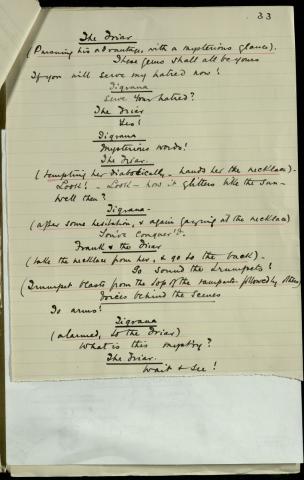 33
The Friar
(Pursuing his advantage, with a mysterious glance).
These gems shall all be yours
If you will serve my hatred now!
Tigrana
Serve your hatred?
The Friar
Yes!
Tigrana
Mysterious words!
The Friar.
(tempting her diabolically - hands her the necklace).
Look! - Look - how it glitters like the sun -
Well then?
Tigrana -
(after some hesitation, & again gazing at the necklace)
You've conquer'd.
Frank & the Friar
(take the necklace from her, & go to the back) -
Go sound the trumpets!
(Trumpet blasts from the top of the ramparts followed by others)
Voices behind the scenes
To arms!
Tigrana
(alarmed, to the Friar)
What is this mystery?
The Friar.
Wait & see!